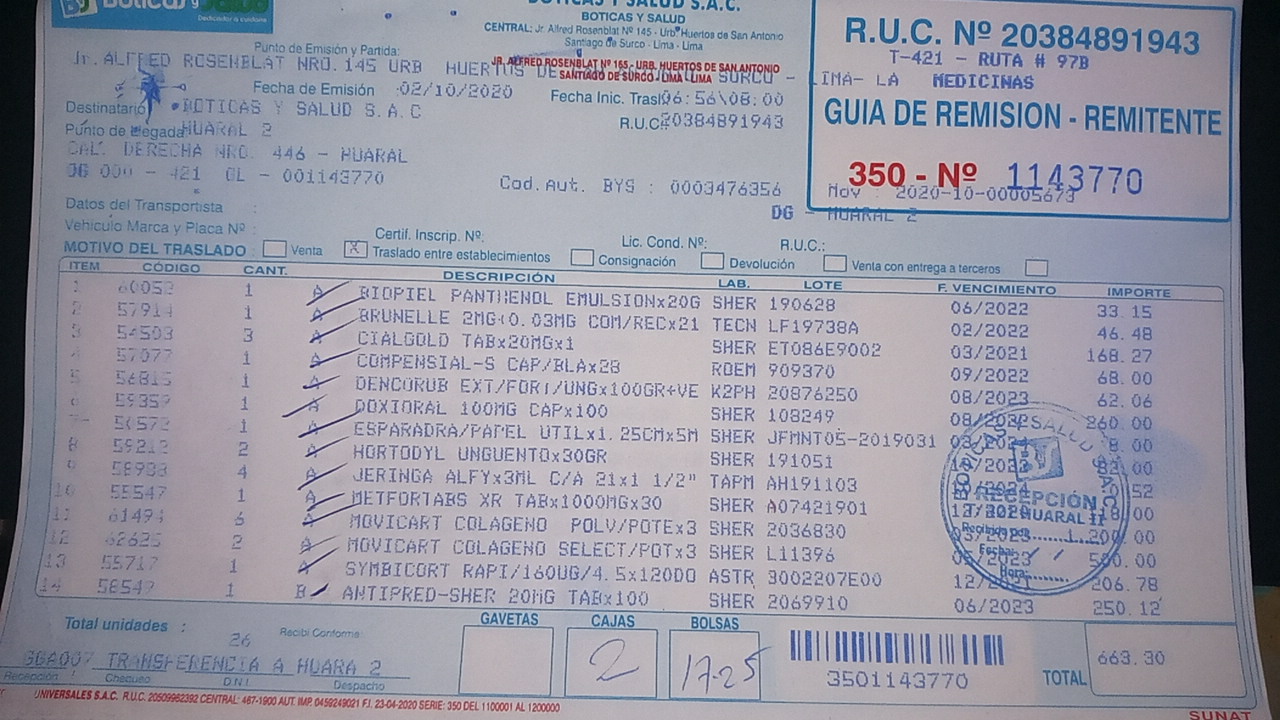 Boticas y Salud
Dedicados a cuidarte
BOTICAS Y SALUD S.A.C.
BOTICAS Y SALUD
CENTRAL: Jr. Alfred Rosenblat Nº 145 - Urb. Huertos de San Antonio
Santiago de Surco - Lima - Lima
R.U.C. Nº 20384891943
T-421 - RUTA # 97B
MEDICINAS
GUIA DE REMISION - REMITENTE
350 - Nº 1143770
Mov 2020-10-00005673
DG - HUARAL 2
Punto de Emisión y Partida:
Jr. ALFRED ROSENBLAT NRO. 145 URB HUERTOS DE SURCO - LIMA- LA
JR. ALFRED ROSENBLAT Nº 165 - URB. HUERTOS DE SAN ANTONIO
SANTIAGO DE SURCO - LIMA - LIMA
Fecha de Emisión :02/10/2020 Fecha Inic. Trasl 06:56\08:00
Destinatario BOTICAS Y SALUD S.A.C R.U.C. 20384891943
Punto de llegada HUARAL 2
CAL. DERECHA NRO. 446 - HUARAL
DG 000 - 421 GL - 001143770 Cod.Aut. BYS : 0003476356
Datos del Transportista :
Vehiculo Marca y Placa Nº : Certif. Inscrip. Nº: Lic. Cond. Nº: R.U.C.:
MOTIVO DEL TRASLADO : Venta X Traslado entre establecimientos Consignación Devolución Venta con entrega a terceros
ITEM CÓDIGO CANT. DESCRIPCIÓN LAB. LOTE F. VENCIMIENTO IMPORTE
1 60052 1 A BIOPIEL PANTHENOL EMULSIONx20G SHER 190628 06/2022 33.15
2 57914 1 A BRUNELLE 2MG+0.03MG COM/RECx21 TECN LF19738A 02/2022 46.48
3 54503 3 A CIALGOLD TABx20MGx1 SHER ET086E9002 03/2021 168.27
4 57077 1 A COMPENSIAL-S CAP/BLAx28 ROEM 909370 09/2022 68.00
5 56815 1 A DENCORUB EXT/FORT/UNGx100GR+VE K2PH 20876250 08/2023 62.06
6 59359 1 A DOXIORAL 100MG CAPx100 SHER 108249 260.00
7 1 A ESPARADRA/PAPEL UTILx1.25CMx5M SHER JFMNT05-2019031 8.00
8 59212 2 A HORTODYL UNGUENTOx30GR SHER 191051
9 58933 4 A JERINGA ALFYx3ML C/A 21x1 1/2" TAPM AH191103
10 55547 1 A METFORTABS XR TABx1000MGx30 SHER A07421901
11 61494 6 A MOVICART COLAGENO POLV/POTEx3 SHER 2036830
12 62625 2 A MOVICART COLAGENO SELECT/POTx3 SHER L11396
13 55717 1 A SYMBICORT RAPI/160UG/4.5x120DO ASTR 3002207E00 206.78
14 58547 1 B ANTIPRED-SHER 20MG TABx100 SHER 2069910 06/2023 250.12
BOTICAS Y SALUD S.A.C.
RECEPCIÓN
HUARAL II
Recibido por
Fecha: / /
Hora:
Total unidades : 26 Recibi Conforme
GGA007 TRANSFERENCIA A HUARA 2
Recepción Chequeo D.N.I. Despacho
GAVETAS CAJAS BOLSAS
2 17-25
3501143770
TOTAL 663.30
UNIVERSALES S.A.C. R.U.C. 20509962392 CENTRAL: 467-1900 AUT. IMP. 0459249021 F.I. 23-04-2020 SERIE: 350 DEL 1100001 AL 1200000
SUNAT